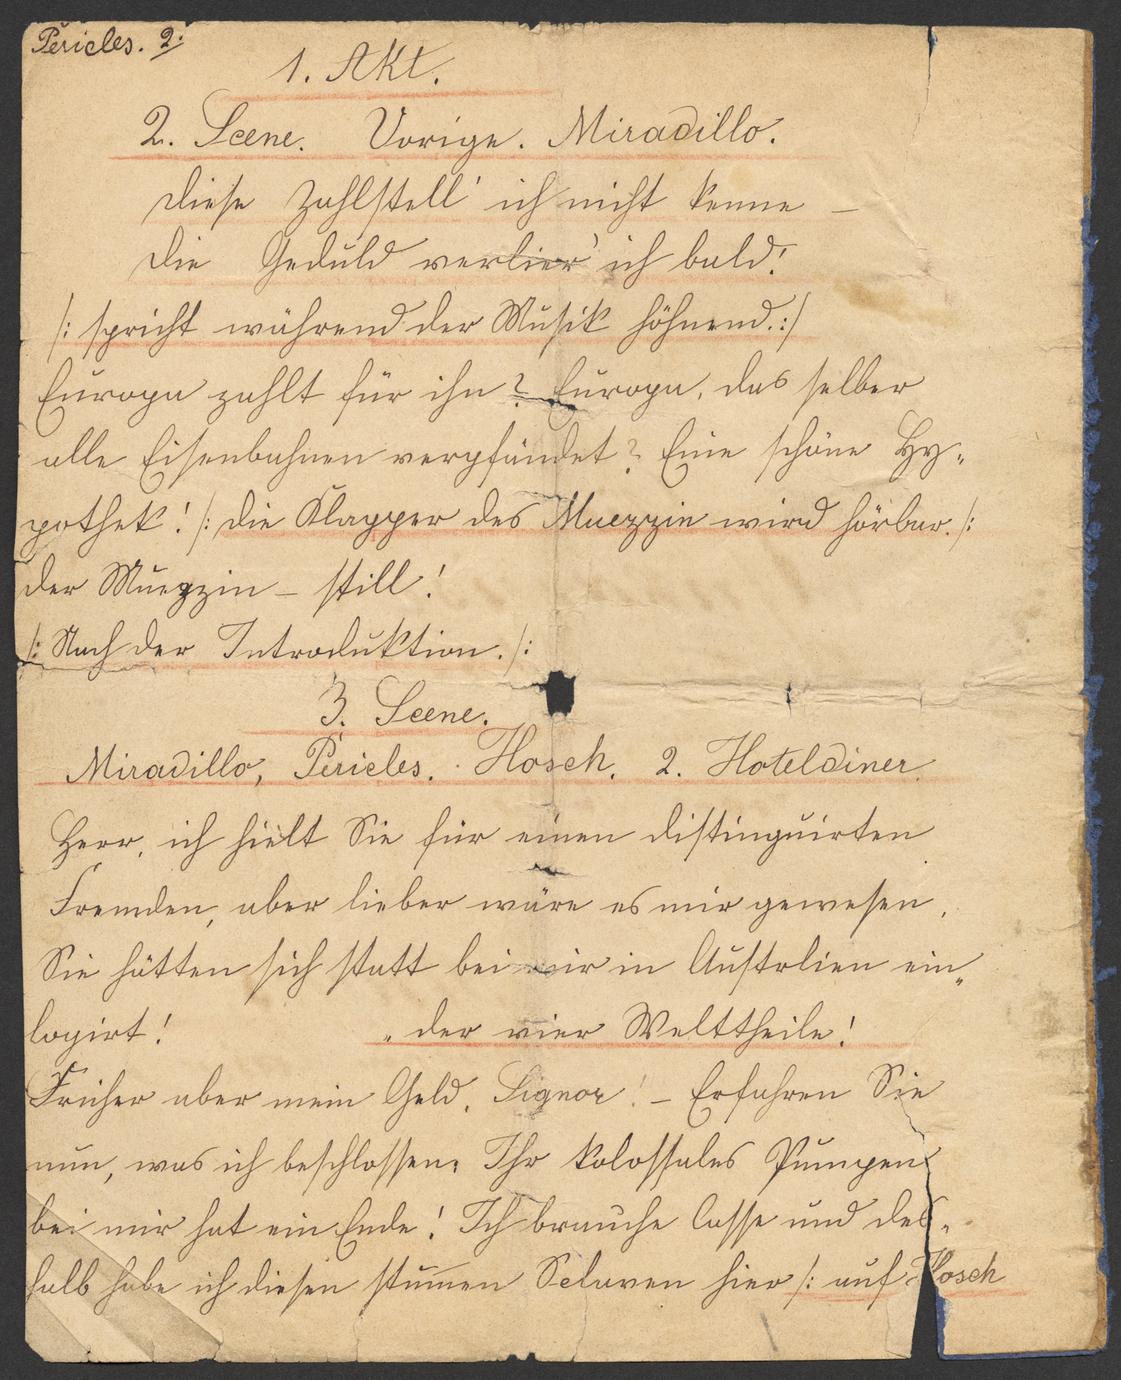 Pericles. 2.
1. Akt.
2. Scene. Vorige. Miradillo.
Diese Zahlstell' ich nicht kenne –
Die Geduld verlier' ich bald!
/: spricht während der Musik höhnend. :/
Europa zahlt für ihn? Europa, das selber
alle Eisenbahnen verpfändet? Eine schöne Hy-
pothek! /: die Klapper des Muezzin wird hörbar. /:
der Muezzin – still!
/: Nach der Introduktion. /:
3. Scene.
Miradillo, Pericles. Hosch. 2. Hoteldiner.
Herr, ich hielt Sie für einen distinguirten
Fremden, aber lieber wäre es mir gewesen,
Sie hätten sich statt bei mir in Austrlien ein„
logirt! „ der vier Welttheile!
Früher aber mein Geld, Signor! – Erfahren Sie
nun, was ich beschlossen: Ihr kolossales Pumpen
bei mir hat ein Ende! Ich brauche Casse und des-
halb habe ich diesen stummen Sclaven hier /: auf Hosch